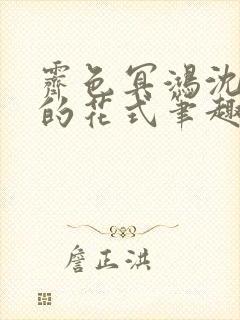 霽色冥鴻沈
的花式筆趣
詹正洪